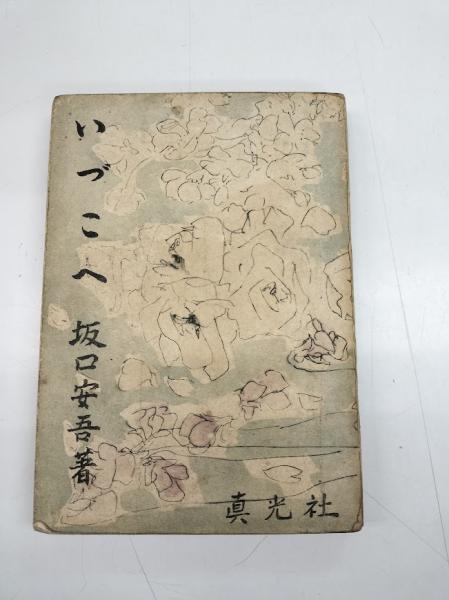 いづこへ
坂口安吾著
真光社